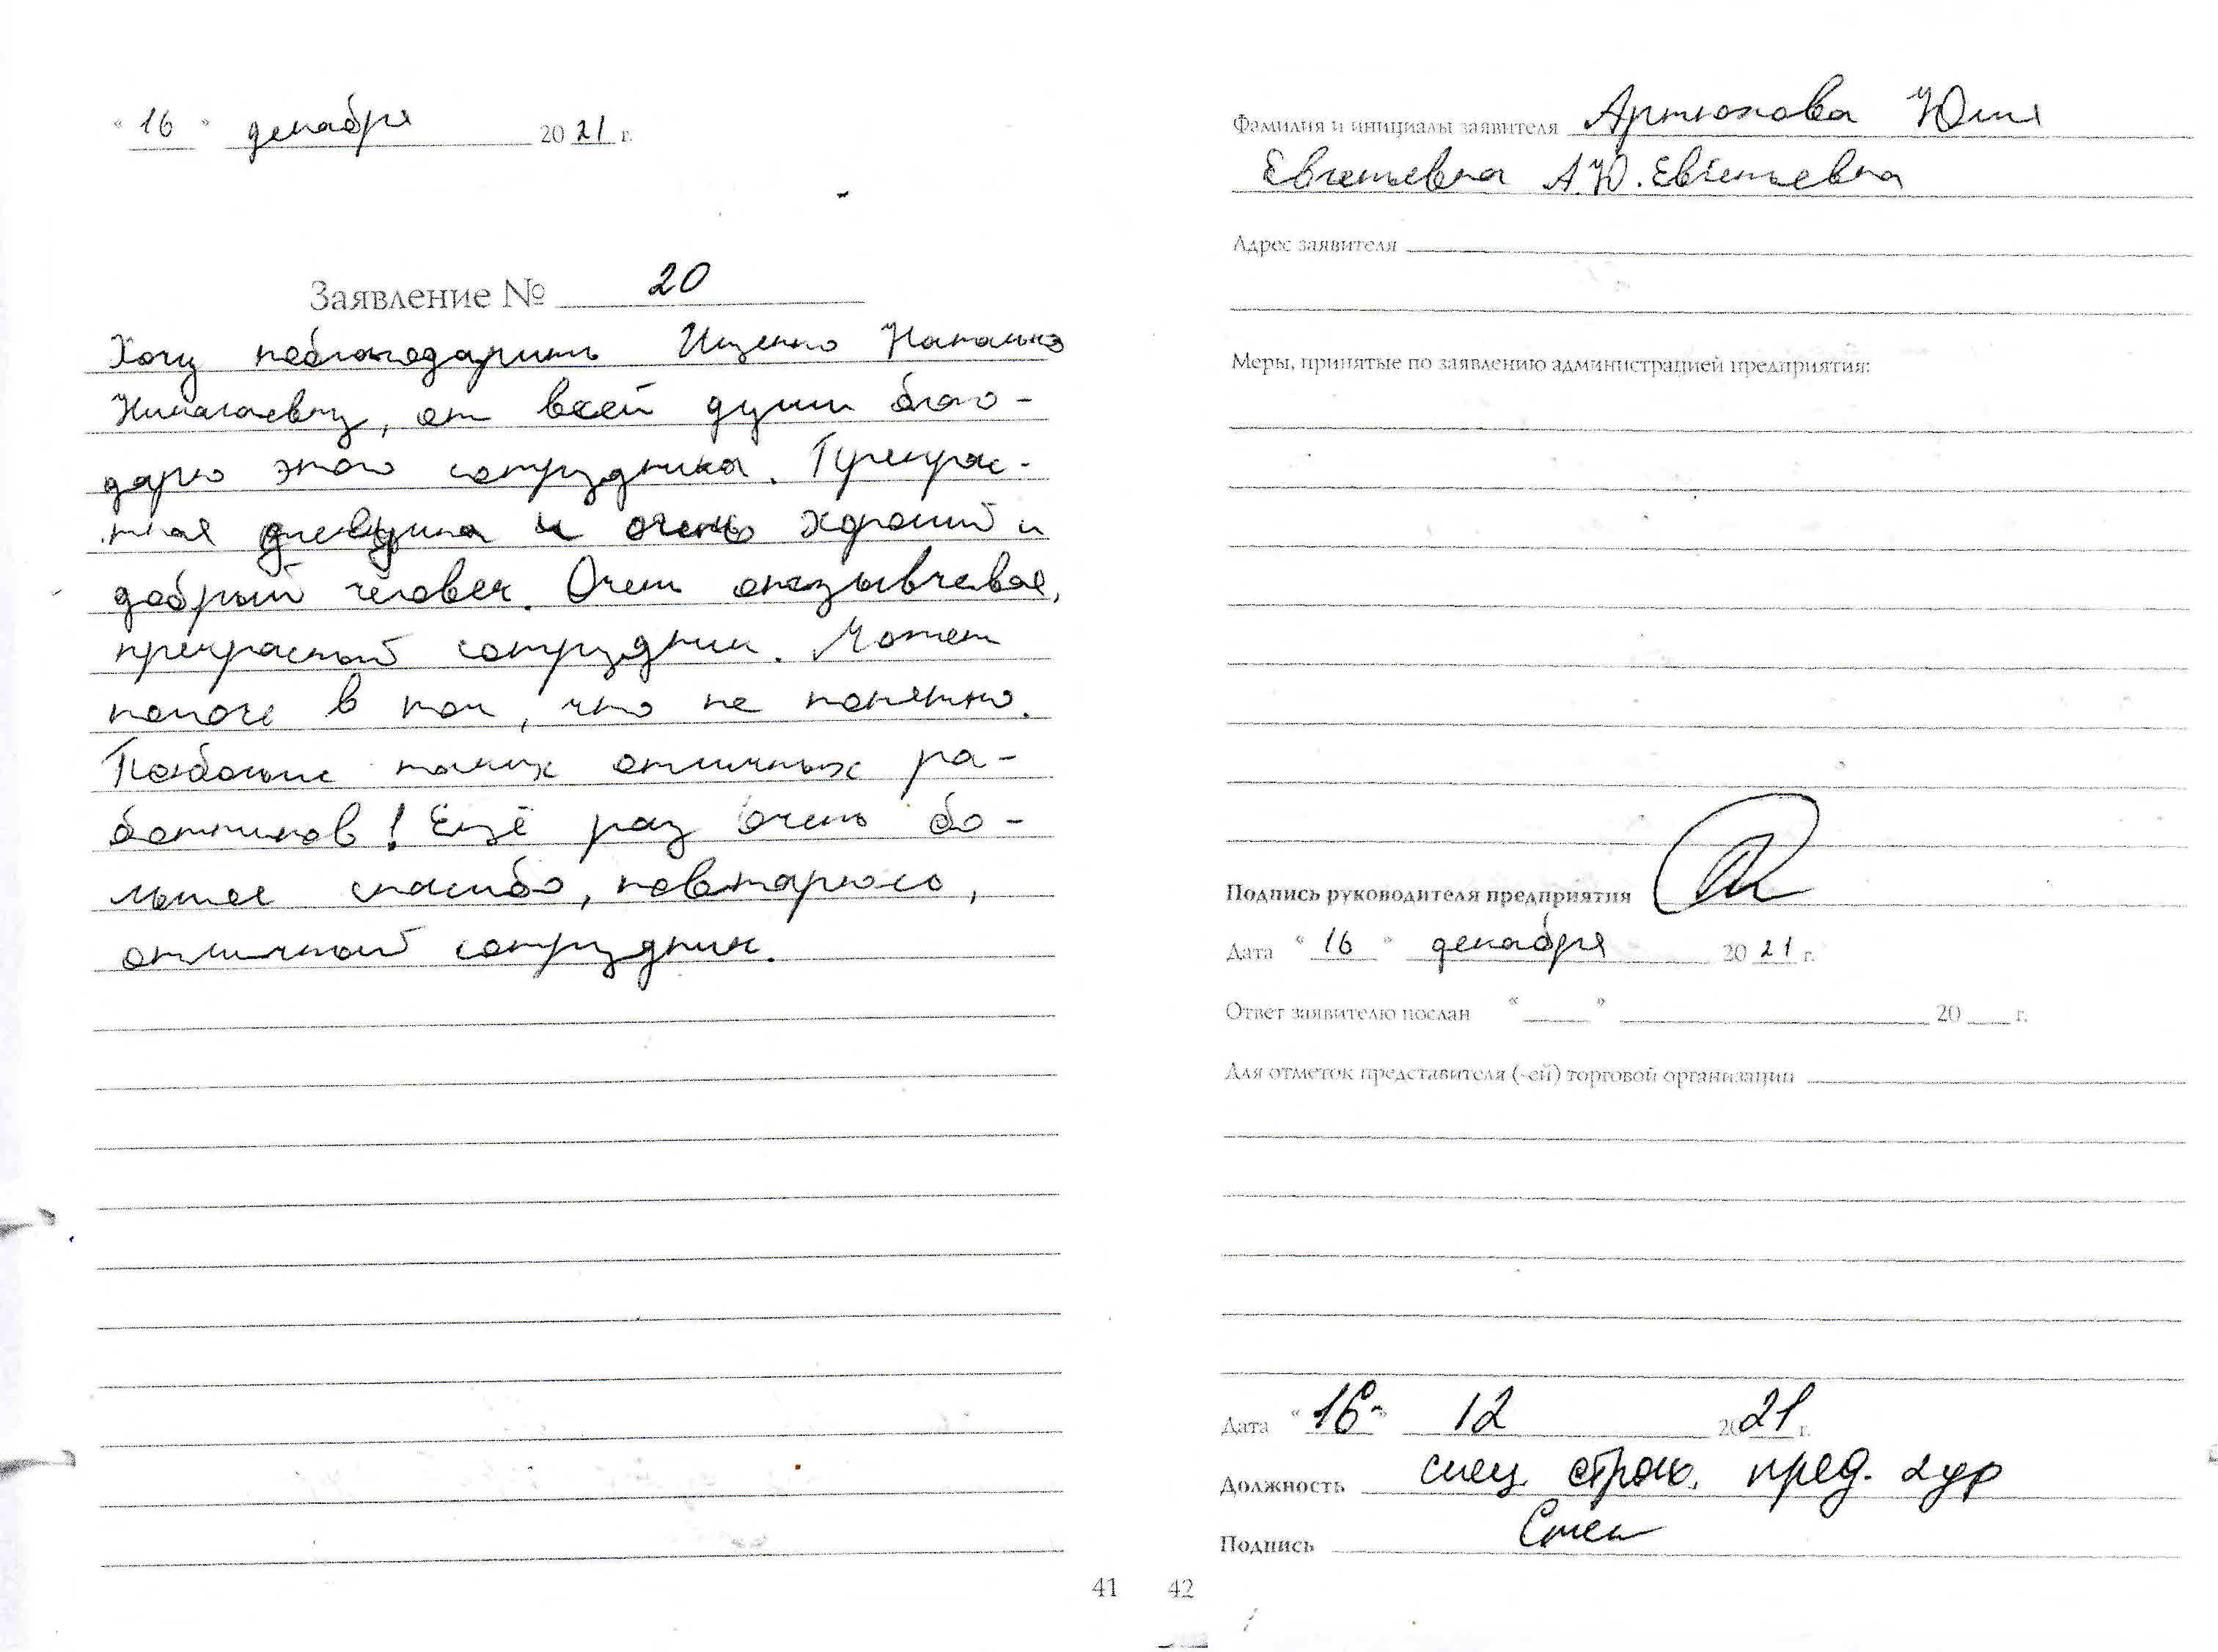 " 16 " декабря 2021 г.
Заявление № 20
Хочу поблагодарить Ищенко Наталью
Николаевну, от всей души благо-
дарю этого сотрудника. Прекрас-
ная девушка и очень хороший и
добрый человек. Очень отзывчивая,
прекрасный сотрудник. Может
помочь в том, что не понятно.
Побольше таких отличных ра-
ботников! Ещё раз очень бо-
льшое спасибо, повторюсь,
отличный сотрудник.
41
Фамилия и инициалы заявителя Артюхова Юлия
Евгеньевна А.Ю. Евгеньевна
Адрес заявителя
Меры, принятые по заявлению администрацией предприятия:
Подпись руководителя предприятия
Дата " 16 " декабря 2021 г.
Ответ заявителю послан " " 20 г.
Для отметок представителя (-ей) торговой организации
Дата " 16 " 12 2021 г.
Должность спец. пред.
Подпись
42